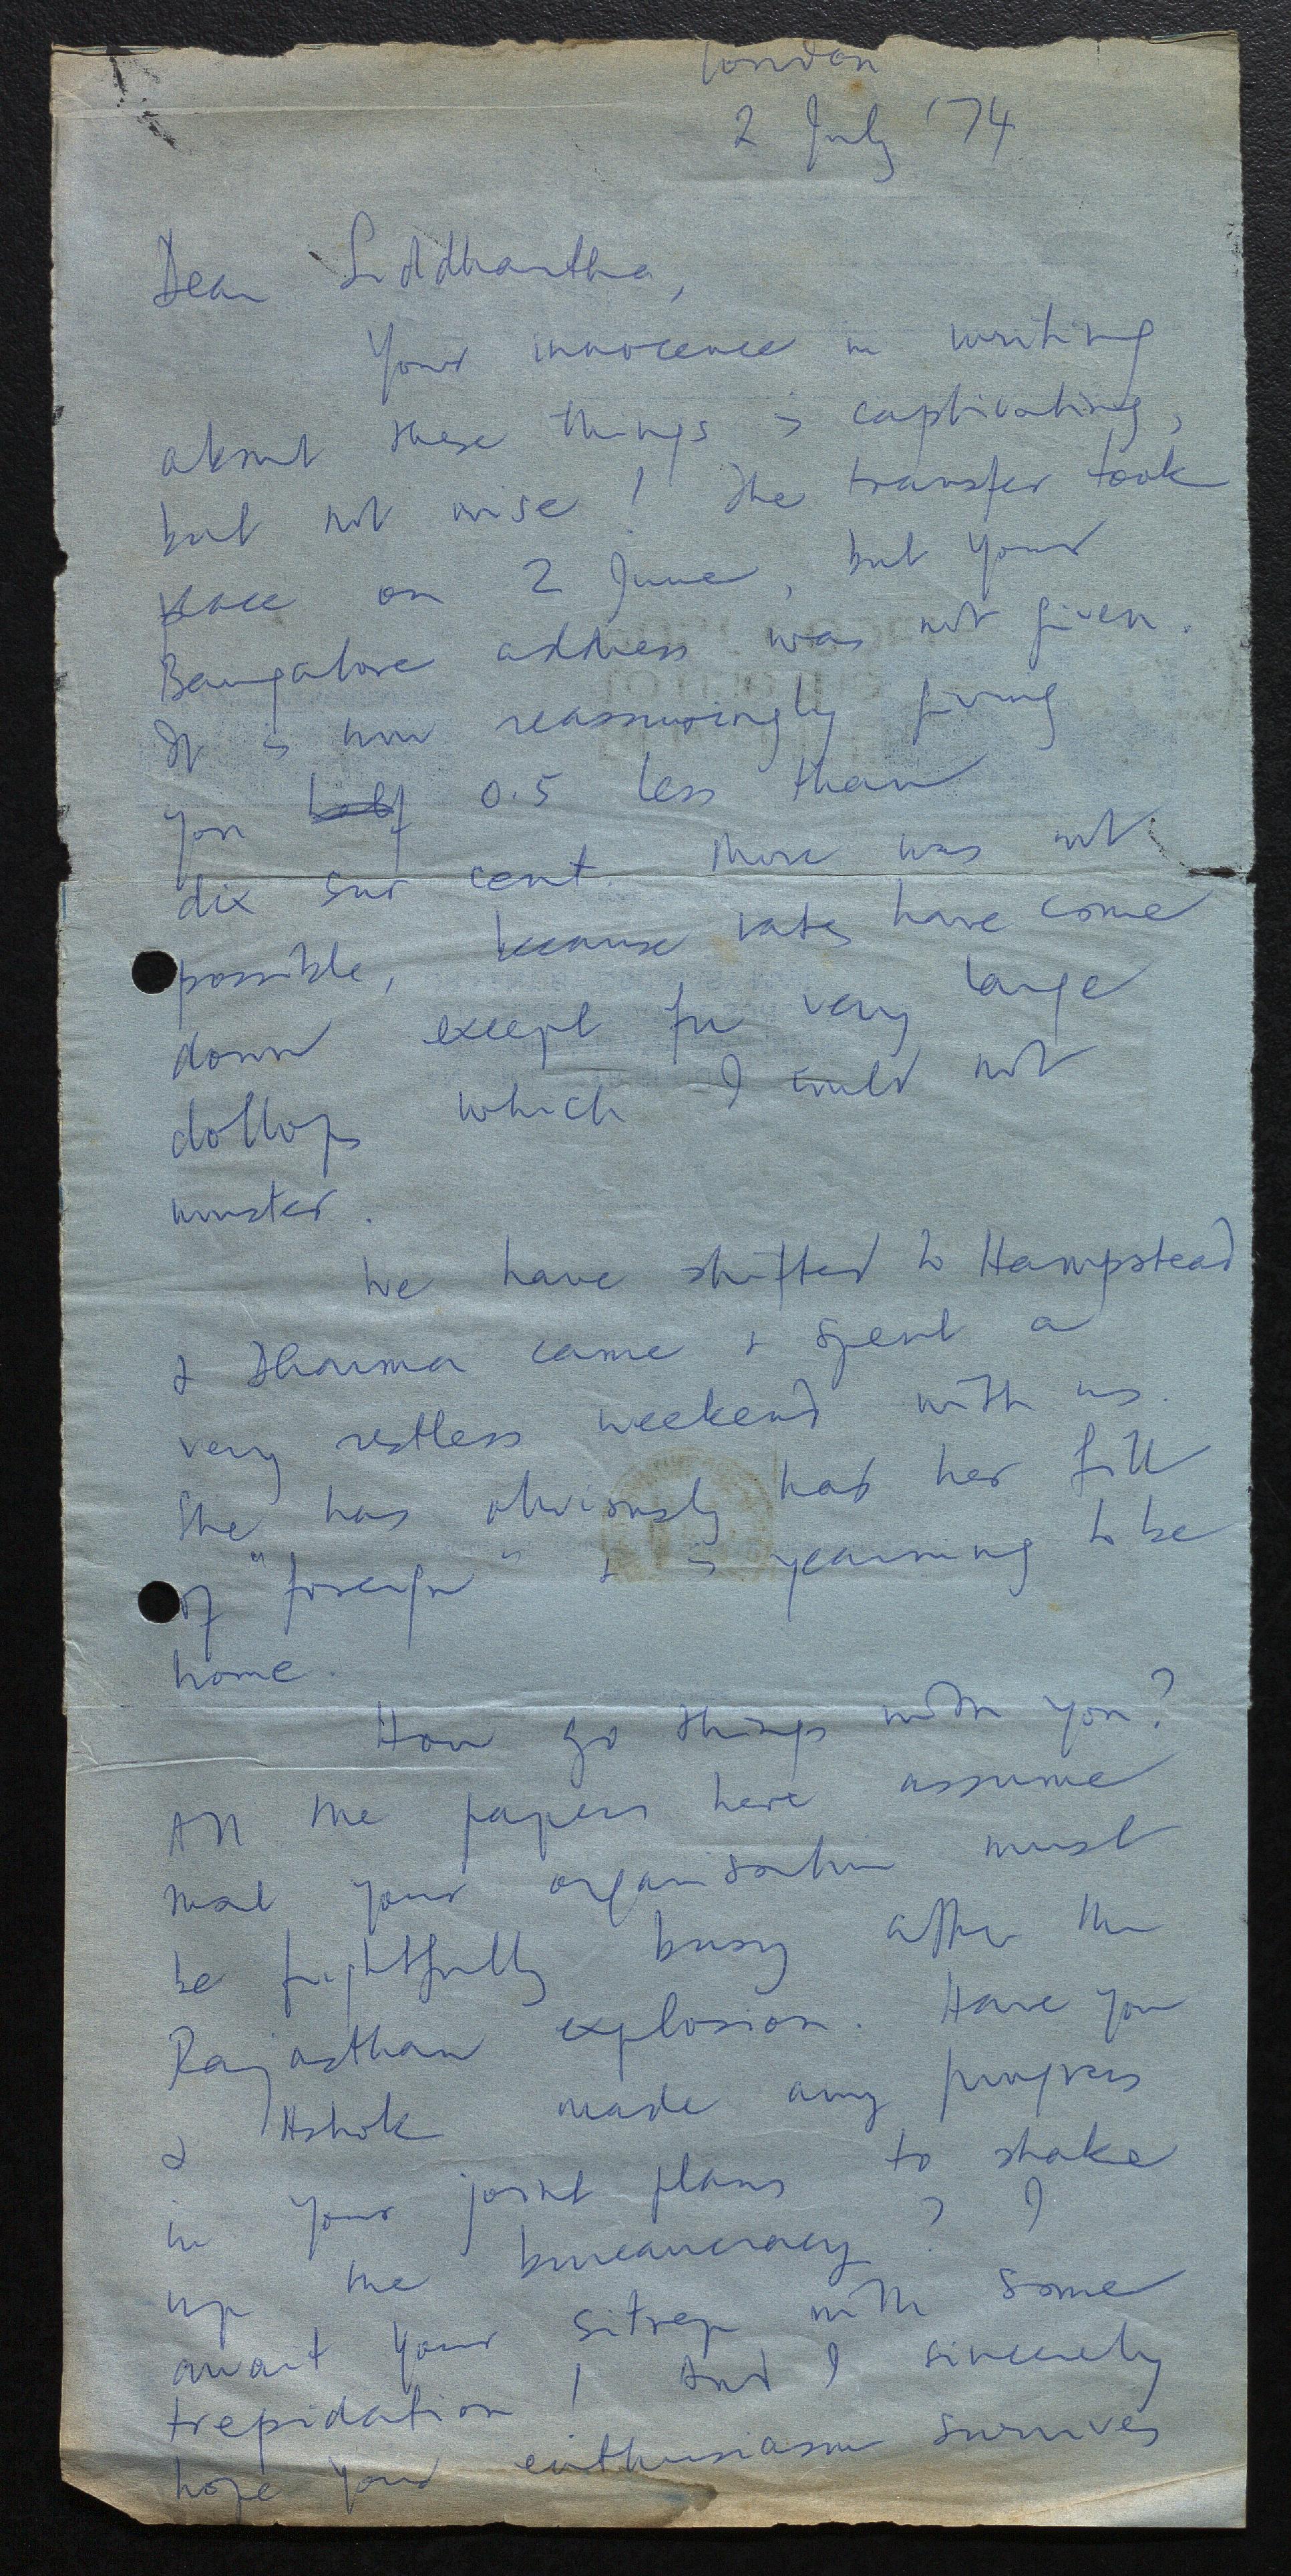 London
2 July '74
Dear Siddhartha,
Your innocence in writing
about these things is captivating,
but not wise! The transfer took
place on 2 June, but your
Bangalore address was not given.
It is now reassuringly giving
you half 0.5 less than
dix sur cent. More was not
possible, because rates have come
down except for very large
dollops which I could not
muster.
We have shifted to Hampstead
& Dharma came & spent a
very restless weekend with us.
She has obviously had her fill
of "foreign" & is yearning to be
home.
How go things with you?
All the papers here assume
that your organisation must
be frightfully busy after the
Rajasthan explosion. Have you
& Ashok made any progress
in your joint plans to shake
up the bureaucracy? I
await your sitrep with some
trepidation! And I sincerely
hope your enthusiasm survives